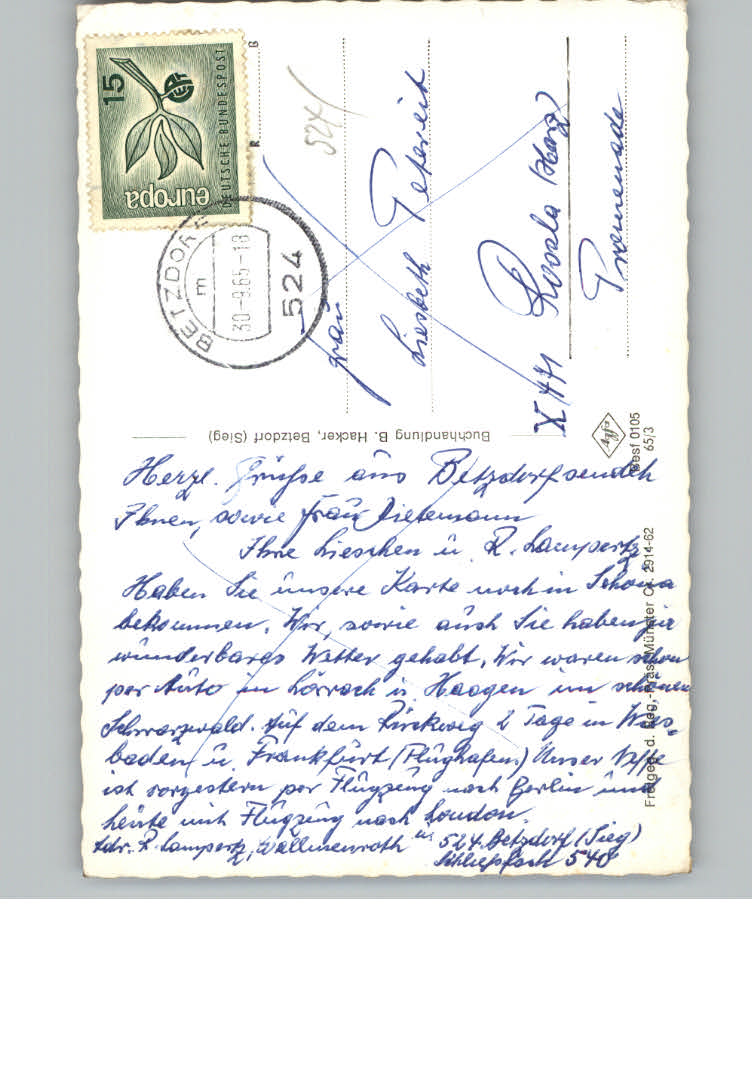 15
DEUTSCHE BUNDESPOST
europa
BETZDORF
m
30-9.65-18
524
524
Frau
Liesbeth
X 471 Rossla (Harz)
Promenade
Buchhandlung B. Hacker, Betzdorf (Sieg)
Agfa
Best 0105
65/3
Freigeg. d. Reg.-Präs. Münster Cr. 2914-62
Herzl. Grüsse aus Betzdorf senden
Ihnen, sowie Frau Dietemann
Ihre Lieschen u. R. Lampertz
Haben Sie unsere Karte noch in
bekommen. Wir, sowie auch Sie haben ja
wunderbares Wetter gehabt. Wir waren schon
per Auto in Lörrach u. Haagen im schönen
Schwarzwald. Auf dem Rückweg 2 Tage in Wies-
baden u. Frankfurt (Flughafen) Unser Neffe
ist vorgestern per Flugzeug nach Berlin und
heute mit Flugzeug nach London.
Adr. R. Lampertz, Wallmenroth u. 524 Betzdorf (Sieg)
Schliepfach 540